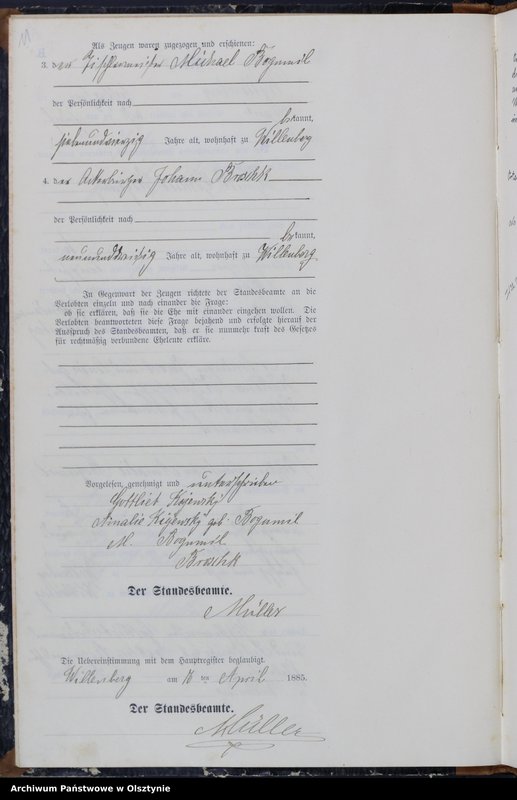 Als Zeugen waren zugezogen und erschienen:
3. der Tischlermeister Michael Bogumil
der Persönlichkeit nach
bekannt,
siebenundvierzig Jahre alt, wohnhaft zu Willenberg
4. der Ackerbürger Johann Broschk
der Persönlichkeit nach
bekannt,
neununddreißig Jahre alt, wohnhaft zu Willenberg.
In Gegenwart der Zeugen richtete der Standesbeamte an die
Verlobten einzeln und nach einander die Frage:
ob sie erklären, daß sie die Ehe mit einander eingehen wollen. Die
Verlobten beantworteten diese Frage bejahend und erfolgte hierauf der
Ausspruch des Standesbeamten, daß er sie nunmehr kraft des Gesetzes
für rechtmäßig verbundene Eheleute erkläre.
Vorgelesen, genehmigt und unterschrieben
Gottlieb
geb. Bogumil
M. Bogumil
Broschk
Der Standesbeamte.
Müller
Die Uebereinstimmung mit dem Hauptregister beglaubigt.
Willenberg am ten April 1885.
Der Standesbeamte.
Müller
Archiwum Państwowe w Olsztynie